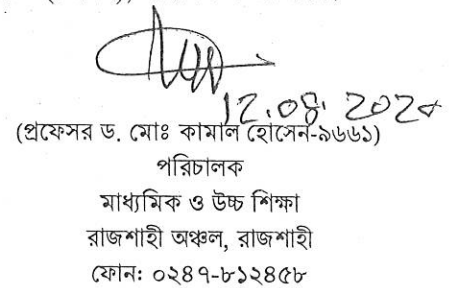 12.08.202
(প্রফেসর ড. মোঃ কামাল হোসেন-৯৬৬১)
পরিচালক
মাধ্যমিক ও উচ্চ শিক্ষা
রাজশাহী অঞ্চল, রাজশাহী
ফোন: ০২৪৭-৮১২৪৫৮